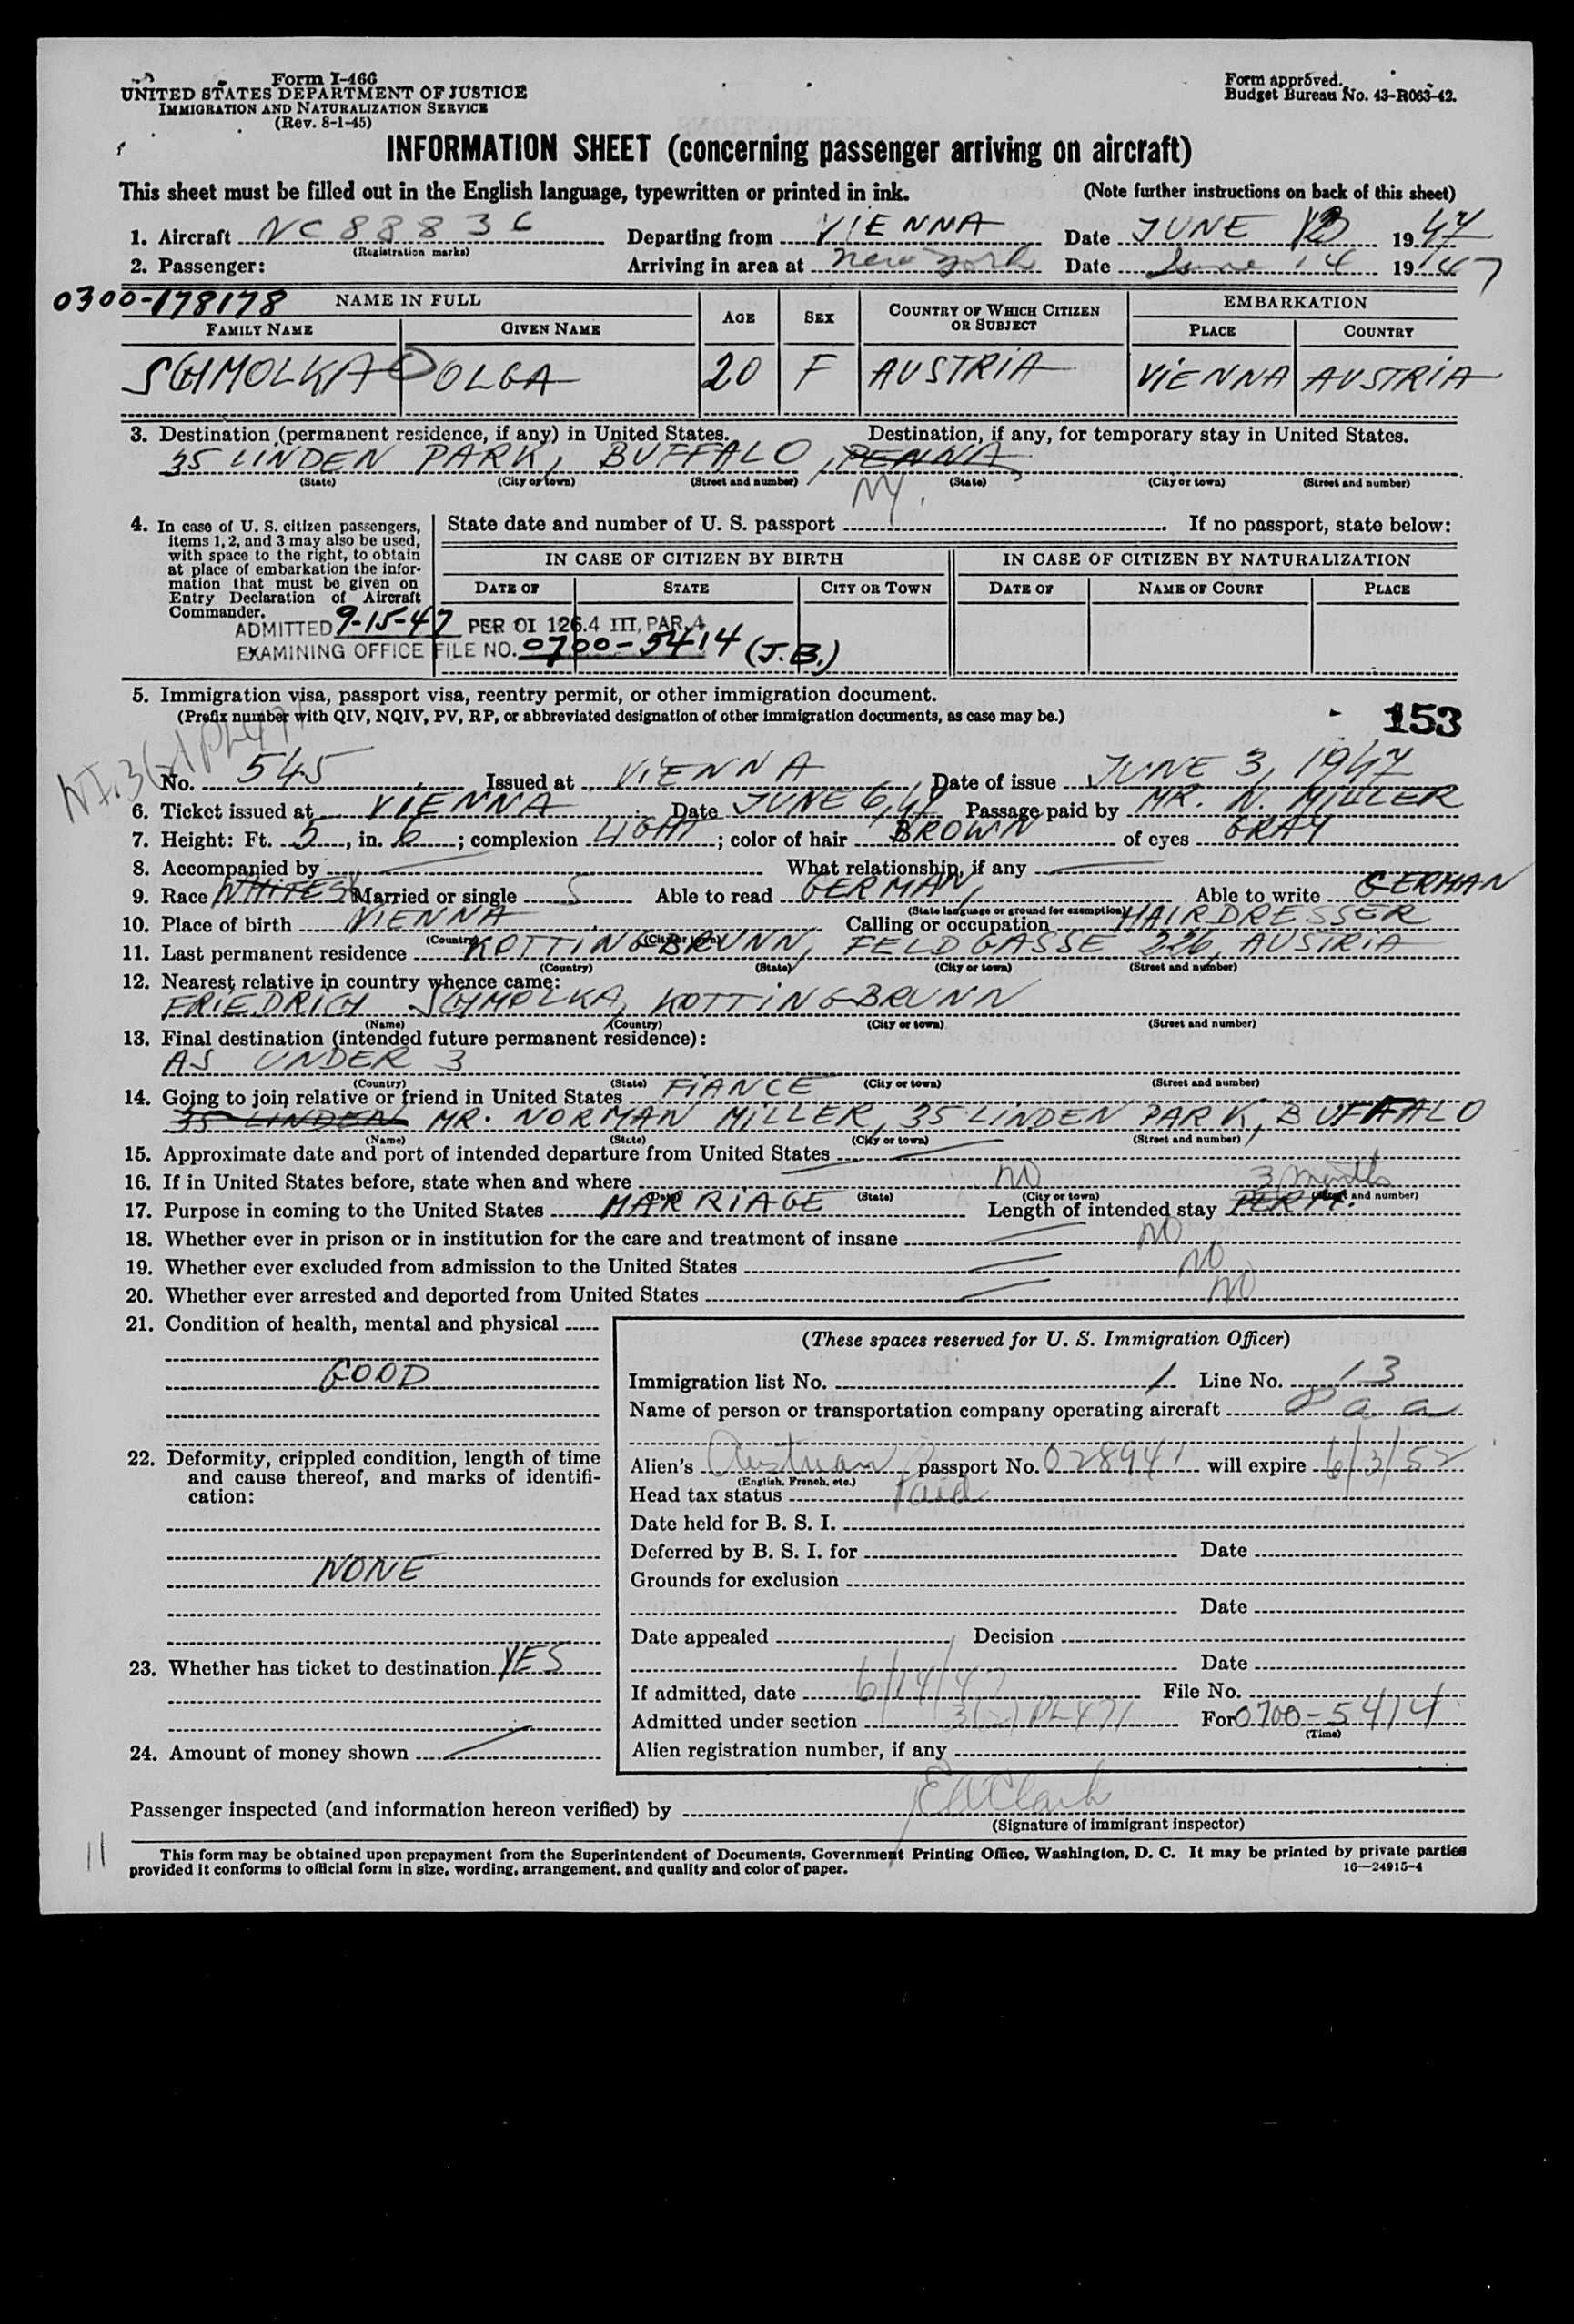 Form I-466
UNITED STATES DEPARTMENT OF JUSTICE
IMMIGRATION AND NATURALIZATION SERVICE
(Rev. 8-1-45)
Form approved.
Budget Bureau No. 43-R063-42.
INFORMATION SHEET (concerning passenger arriving on aircraft)
This sheet must be filled out in the English language, typewritten or printed in ink. (Note further instructions on back of this sheet)
1. Aircraft NC 88836 Departing from VIENNA Date JUNE 13 1947
(Registration marks)
2. Passenger: Arriving in area at New York Date June 14 1947
0300-178178 NAME IN FULL AGE SEX COUNTRY OF WHICH CITIZEN OR SUBJECT EMBARKATION
FAMILY NAME GIVEN NAME PLACE COUNTRY
SCHMOLKA OLGA 20 F AUSTRIA VIENNA AUSTRIA
3. Destination (permanent residence, if any) in United States. Destination, if any, for temporary stay in United States.
35 LINDEN PARK, BUFFALO, PENNA
(State) (City or town) (Street and number) NY. (State) (City or town) (Street and number)
4. In case of U. S. citizen passengers, items 1, 2, and 3 may also be used, with space to the right, to obtain at place of embarkation the information that must be given on Entry Declaration of Aircraft Commander.
State date and number of U. S. passport If no passport, state below:
IN CASE OF CITIZEN BY BIRTH IN CASE OF CITIZEN BY NATURALIZATION
DATE OF STATE CITY OR TOWN DATE OF NAME OF COURT PLACE
ADMITTED 9-15-47 PER OI 126.4 III, PAR. 4
EXAMINING OFFICE FILE NO. 0700-5414 (J.B.)
5. Immigration visa, passport visa, reentry permit, or other immigration document.
(Prefix number with QIV, NQIV, PV, RP, or abbreviated designation of other immigration documents, as case may be.)
153
No. 545 Issued at VIENNA Date of issue JUNE 3, 1947
6. Ticket issued at VIENNA Date JUNE 6, 47 Passage paid by MR. N. MILLER
7. Height: Ft. 5, in. 6; complexion LIGHT; color of hair BROWN of eyes GRAY
8. Accompanied by What relationship, if any
9. Race WHITE Married or single S Able to read GERMAN, Able to write GERMAN
(State language or ground for exemption)
10. Place of birth VIENNA Calling or occupation HAIRDRESSER
(Country) (City or town)
11. Last permanent residence KOTTINGBRUNN, FELDGASSE 226, AUSTRIA
(Country) (State) (City or town) (Street and number)
12. Nearest relative in country whence came:
FRIEDRICH SCHMOLKA, KOTTINGBRUNN
(Name) (Country) (City or town) (Street and number)
13. Final destination (intended future permanent residence):
AS UNDER 3
(Country) (State) (City or town) (Street and number)
14. Going to join relative or friend in United States FIANCE
35 LINDEN MR. NORMAN MILLER, 35 LINDEN PARK, BUFFALO
(Name) (State) (City or town) (Street and number)
15. Approximate date and port of intended departure from United States
16. If in United States before, state when and where NO
(Date) (State) (City or town) (Street and number)
3 months
17. Purpose in coming to the United States MARRIAGE Length of intended stay PERM.
18. Whether ever in prison or in institution for the care and treatment of insane NO
19. Whether ever excluded from admission to the United States NO
20. Whether ever arrested and deported from United States NO
21. Condition of health, mental and physical
GOOD
22. Deformity, crippled condition, length of time and cause thereof, and marks of identification:
NONE
23. Whether has ticket to destination YES
24. Amount of money shown
(These spaces reserved for U. S. Immigration Officer)
Immigration list No. 1 Line No. 13
Name of person or transportation company operating aircraft P a a
Alien's Austrian passport No. 028941 will expire 6/3/52
(English, French, etc.)
Head tax status Paid
Date held for B. S. I.
Deferred by B. S. I. for Date
Grounds for exclusion
Date
Date appealed Decision
Date
If admitted, date 6/14/47 File No.
Admitted under section PL 471 For 0700-5414
(Time)
Alien registration number, if any
Passenger inspected (and information hereon verified) by E A Clark
(Signature of immigrant inspector)
11
This form may be obtained upon prepayment from the Superintendent of Documents, Government Printing Office, Washington, D. C. It may be printed by private parties
provided it conforms to official form in size, wording, arrangement, and quality and color of paper. 16—24915-4